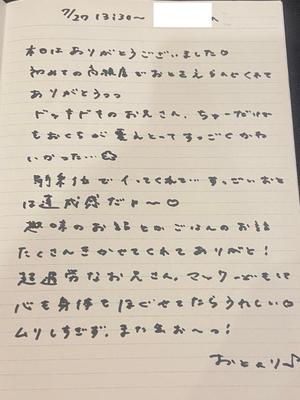 7/27 13:30〜 へ
本日はありがとうございました♡
初めての でおとえらんでくれて
ありがとうっっ
ドッキドキのお兄さん、ちゅーだけで
もおくちが震えとってすっごくかわ
いかった…
でイってくれて… すっごいおと
は達成感だ〜♡
趣味のお話とかごはんのお話
たくさんきかせてくれてありがと!
超過労なお兄さん、マッ
心も身体もほぐせてたらうれしい♡
ムリしすぎず、また会お〜っ!
おとより♪